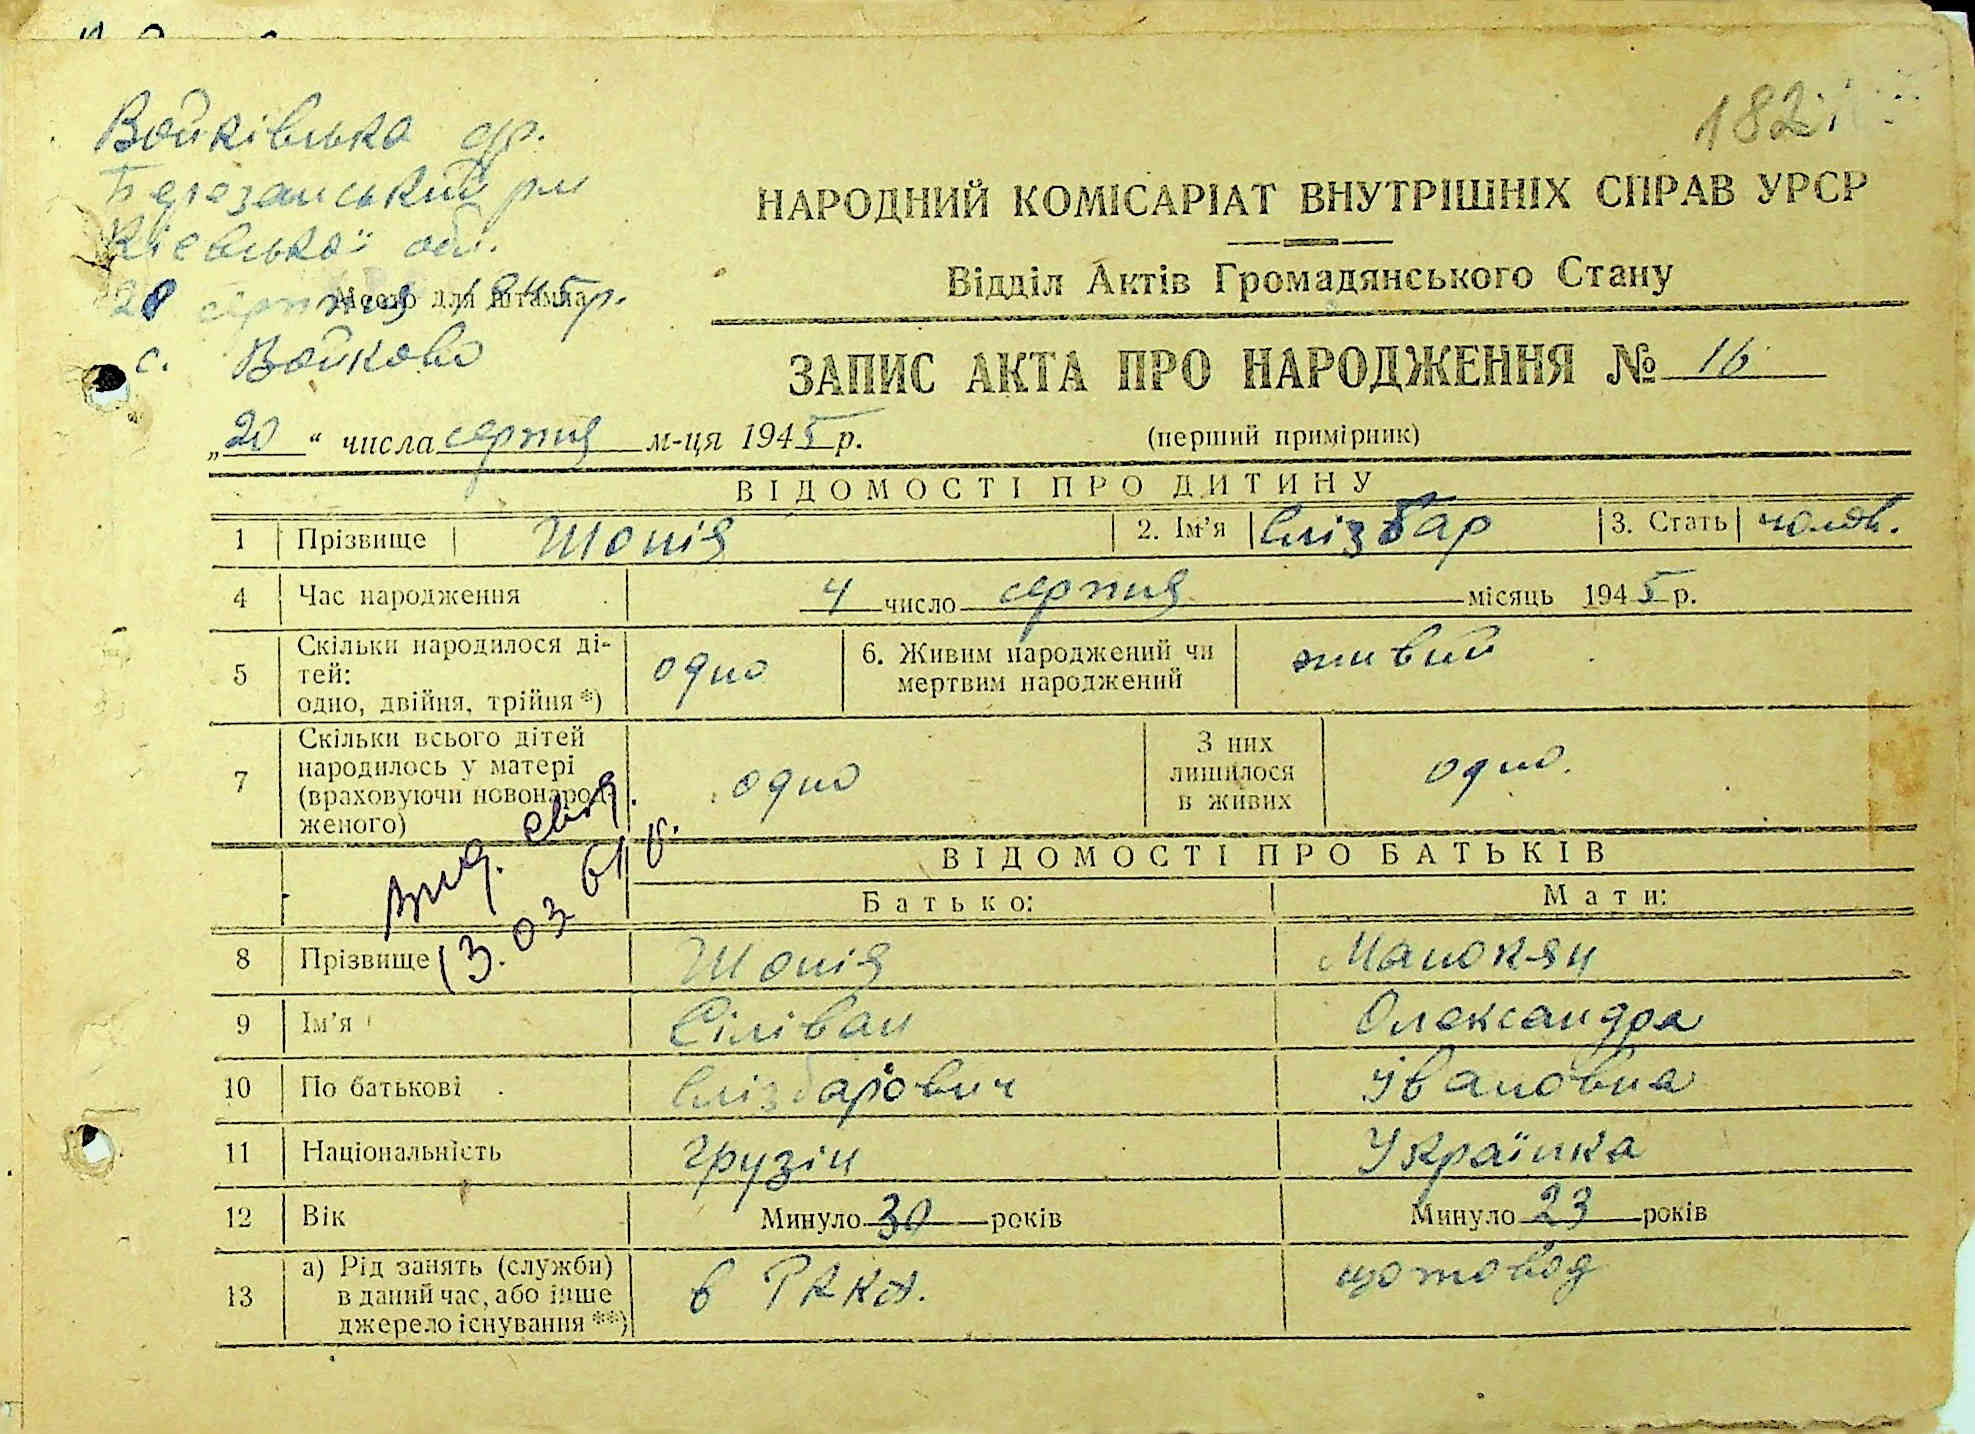 182
Войківська др.
Березанський рн
Київської обл.
Місце для штампа
20 серпня 1945р.
с. Войково
НАРОДНИЙ КОМІСАРІАТ ВНУТРІШНІХ СПРАВ УРСР
Відділ Актів Громадянського Стану
ЗАПИС АКТА ПРО НАРОДЖЕННЯ № 16
„20“ числа серпня м-ця 1945 р. (перший примірник)
ВІДОМОСТІ ПРО ДИТИНУ
1 Прізвище Шонія 2. Ім’я Єлізбар 3. Стать чолов.
4 Час народження 4 число серпня місяць 1945 р.
5 Скільки народилося ді-
тей:
одно, двійня, трійня *) одно
6. Живим народжений чи
мертвим народжений живий
7 Скільки всього дітей
народилось у матері
(враховуючи новонарод-
женого) одно
З них
лишилося
в живих одно.
13.03
ВІДОМОСТІ ПРО БАТЬКІВ
Батько: Мати:
8 Прізвище Шонія Манокян
9 Ім’я Сіліван Олександра
10 По батькові Єлізбарович Івановна
11 Національність грузін Українка
12 Вік Минуло 30 років Минуло 23 років
13 а) Рід занять (служби)
в даний час, або інше
джерело існування **) в РККА. щотовод